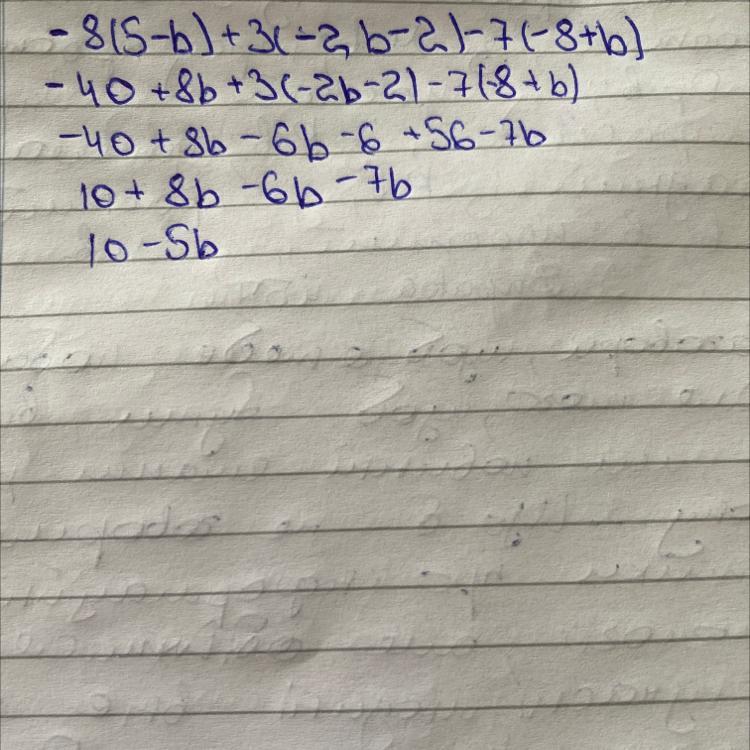 -8(5-b)+3(-2b-2)-7(-8+b)
-40+8b+3(-2b-2)-7(-8+b)
-40+8b-6b-6+56-7b
10+8b-6b-7b
10-5b